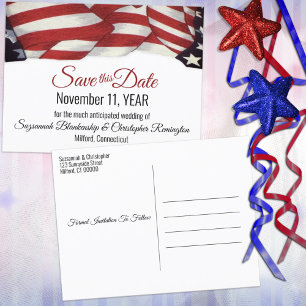 Save this Date
November 11, YEAR
for the much anticipated wedding of
Suzsannah Blankenship & Christopher Remington
Milford, Connecticut
Suzsannah & Christopher
123 Sunnyside Street
Milford, CT 00000
Formal Invitation To Follow